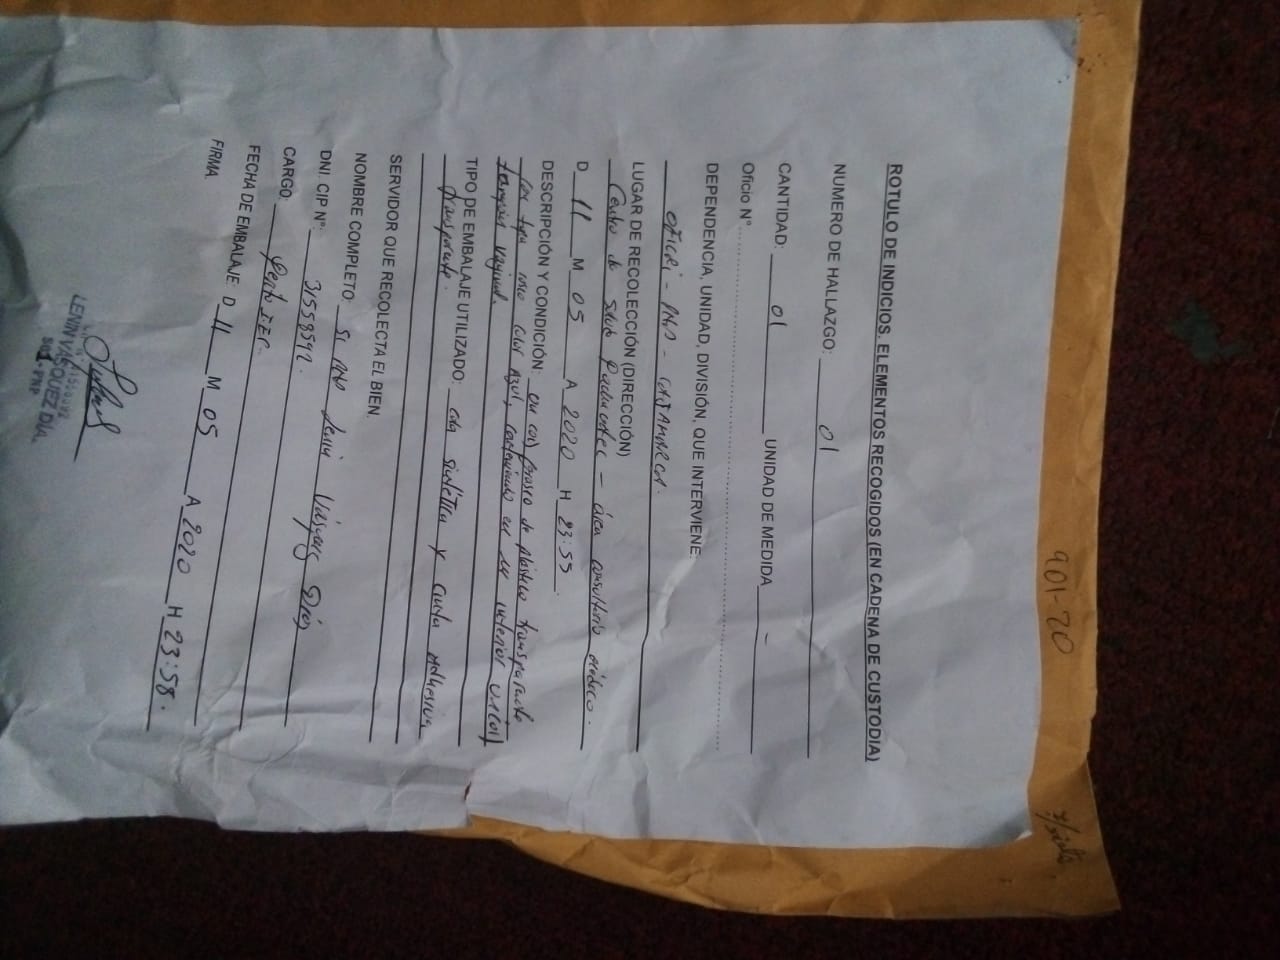 901-20
ROTULO DE INDICIOS. ELEMENTOS RECOGIDOS (EN CADENA DE CUSTODIA)
NUMERO DE HALLAZGO: 01
CANTIDAD: 01 UNIDAD DE MEDIDA -
Oficio N°
DEPENDENCIA, UNIDAD, DIVISIÓN, QUE INTERVIENE:
OFICRI - PNP - CAJAMARCA.
LUGAR DE RECOLECCIÓN (DIRECCIÓN)
Centro de Salud Pachacutec - área consultorio médico.
D 11 M 05 A 2020 H 23:55
DESCRIPCIÓN Y CONDICIÓN: un (01) frasco de plástico transparente
con tapa rosca color azul, conteniendo en su interior un (01)
tampón vaginal.
TIPO DE EMBALAJE UTILIZADO: sintética y cinta adhesiva
transparente.
SERVIDOR QUE RECOLECTA EL BIEN.
NOMBRE COMPLETO: S1 PNP Lenin Vásquez Díaz
DNI. CIP N°: 31558592.
CARGO: Perito I.E.C.
FECHA DE EMBALAJE: D 11 M 05 A 2020 H 23:58.
FIRMA
LENIN VASQUEZ DIA
PNP